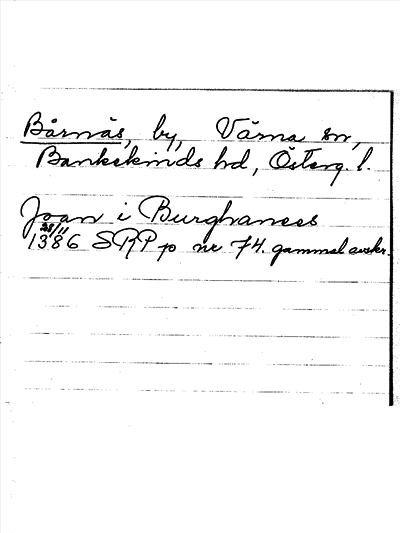 Bårnäs, by, Värna sn,
Bankekinds hd, Österg. l.
Joan i Burghanees
28/11
1386 SRP p nr 74. gammal avskr.